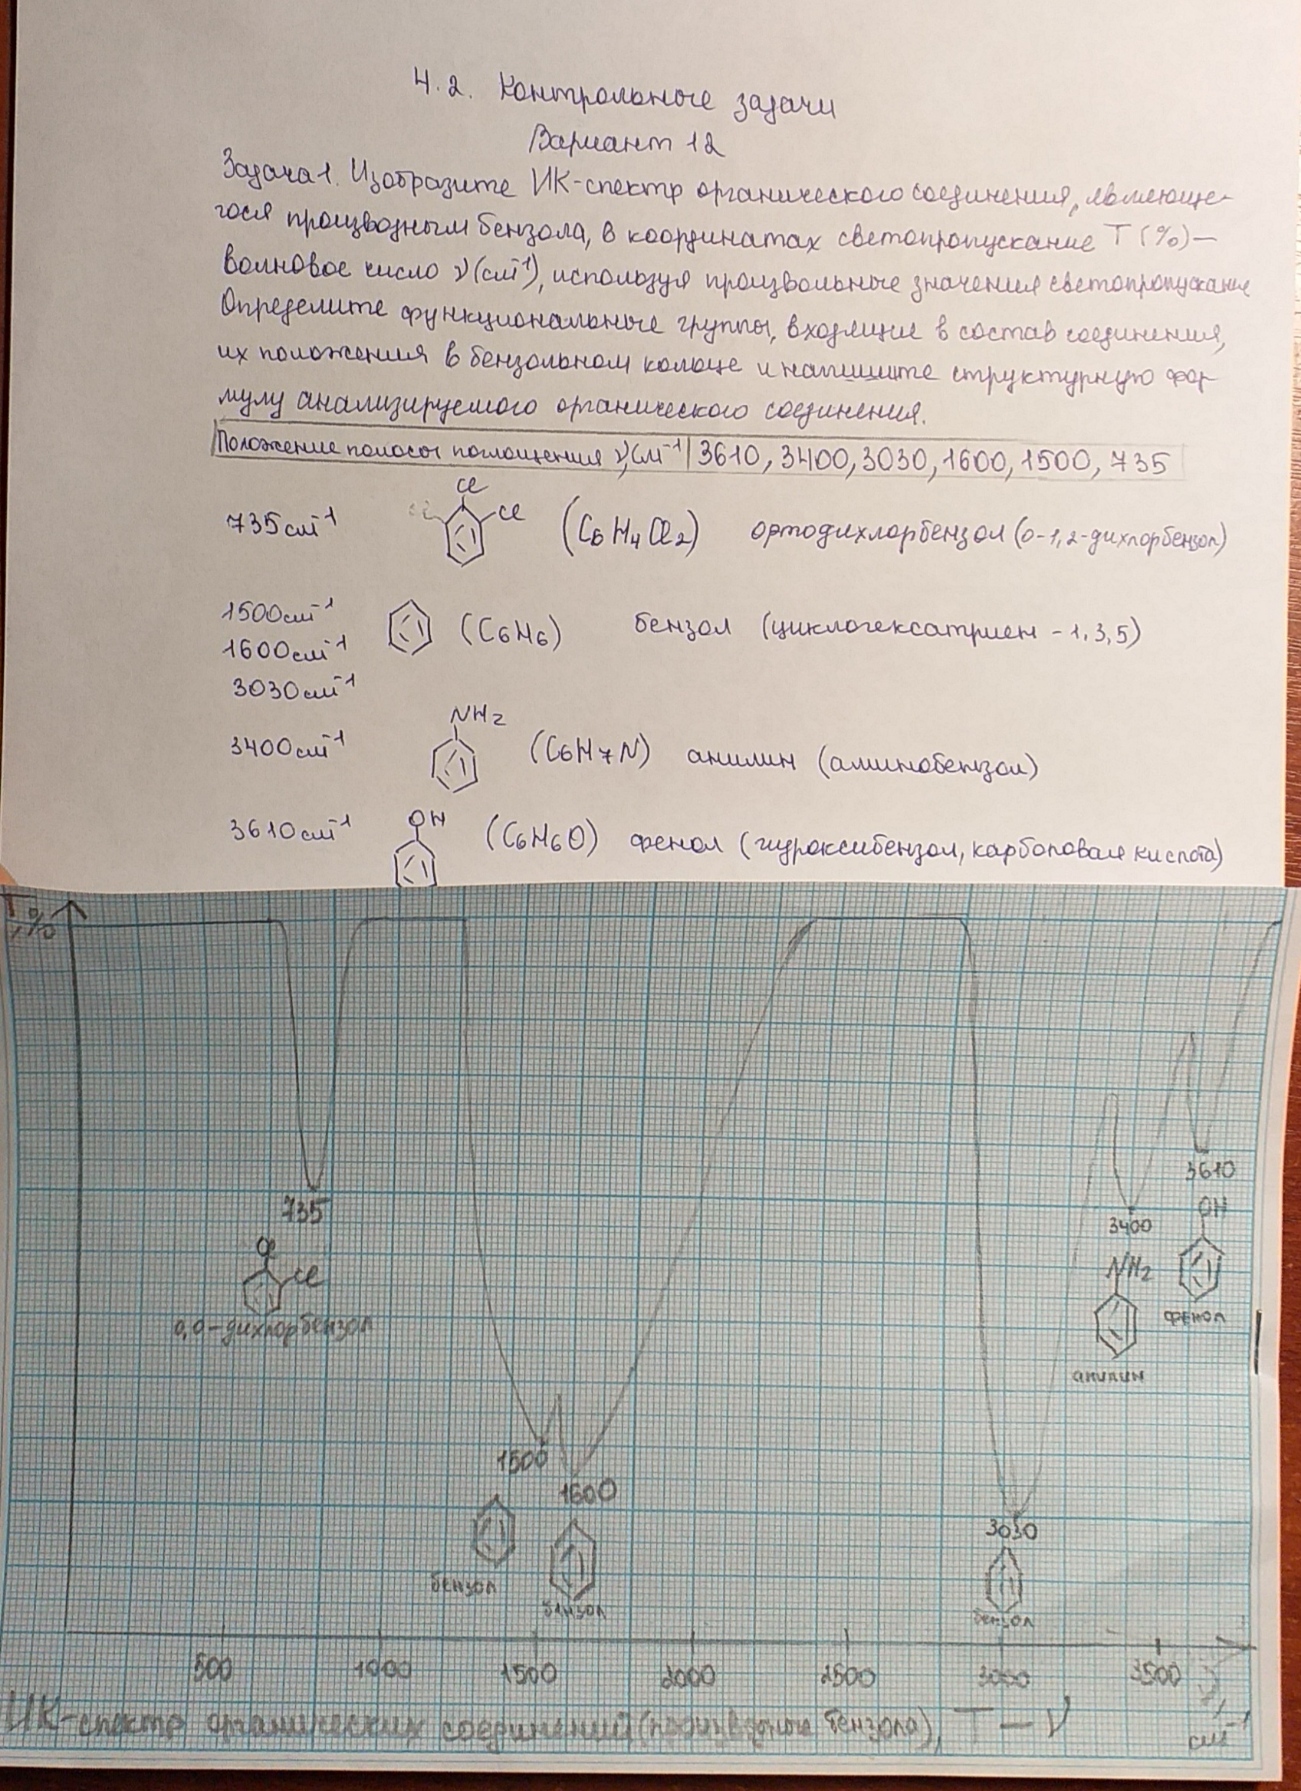 4.2. Контрольные задачи
Вариант 12
Задача 1. Изобразите ИК-спектр органического соединения, являюще-
гося производным бензола, в координатах светопропускание T (%) –
волновое число ν (см⁻¹), используя произвольные значения светопропускания
Определите функциональные группы, входящие в состав соединения,
их положения в бензольном кольце и напишите структурную фор-
мулу анализируемого органического соединения.
Положение полосы поглощения ν, см⁻¹ | 3610, 3400, 3030, 1600, 1500, 735
Cl
735 см⁻¹ Cl Cl (C6H4Cl2) ортодихлорбензол (о-1,2-дихлорбензол)
1500 см⁻¹ (C6H6) бензол (циклогексатриен - 1,3,5)
1600 см⁻¹
3030 см⁻¹
NH2
3400 см⁻¹ (C6H7N) анилин (аминобензол)
OH
3610 см⁻¹ (C6H6O) фенол (гидроксибензол, карболовая кислота)
T,%
3610
735
OH
3400
Cl
NH2
Cl
фенол
о,о-дихлорбензол
анилин
1500
1600
3030
бензол
бензол
бензол
500 1000 1500 2000 2500 3000 3500
ν, см⁻¹
ИК-спектр органических соединений (производные бензола), T – ν